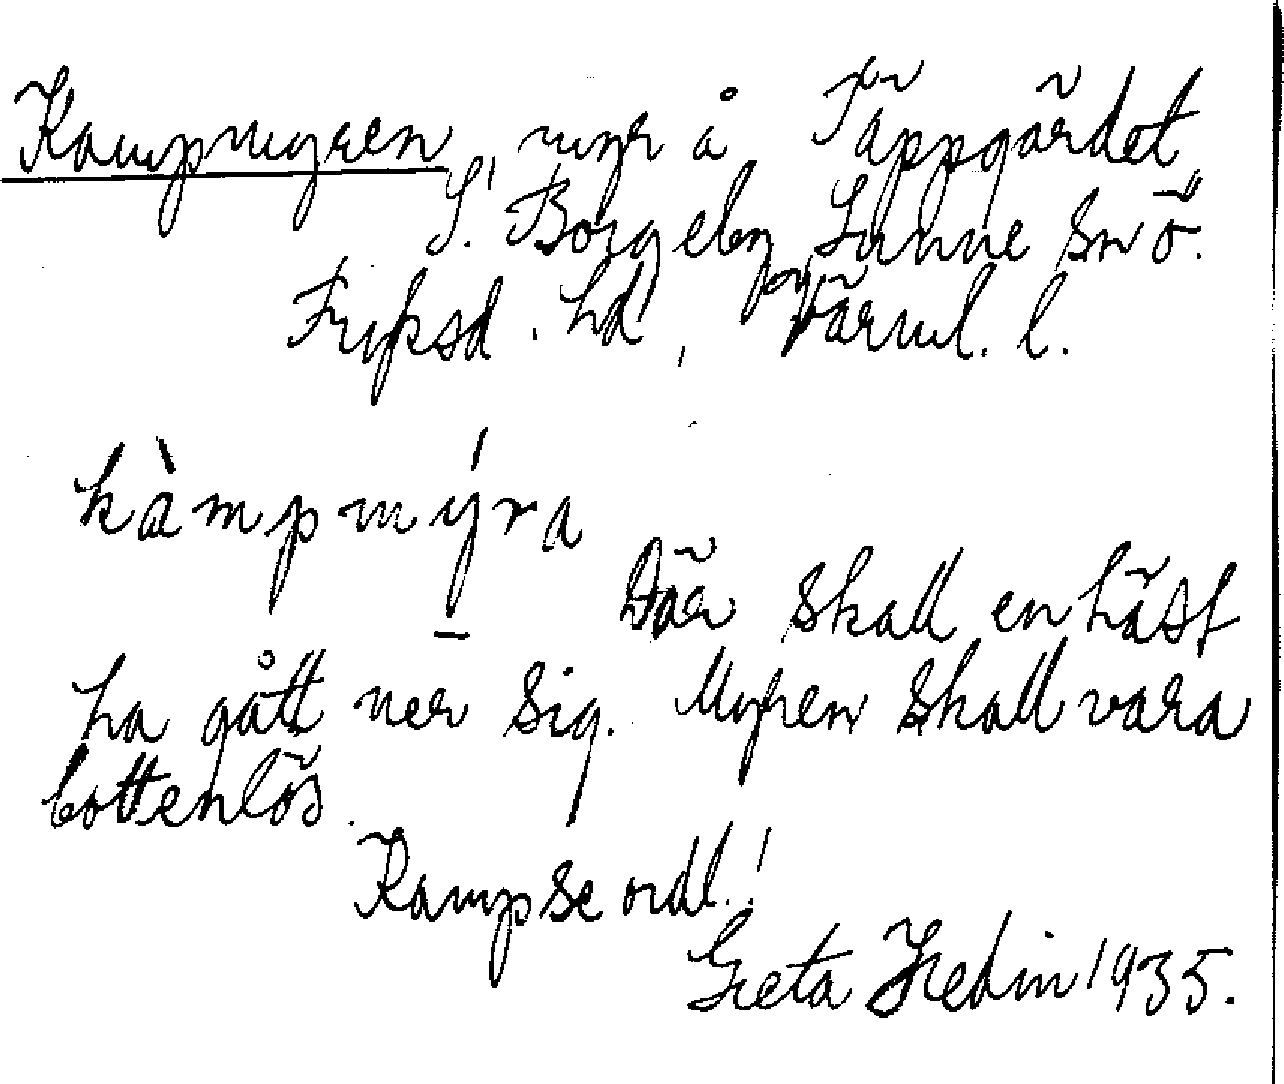 Kampmyren, myr å Täppgärdet
S. Borgeby, Sunne sn ö.
Fryksd. hd, Värml. l.
kàmpmýra
Där skall en häst
ha gått ner sig. Myren skall vara
bottenlös.
Kamp se ordl.!
Greta Hedin 1935.